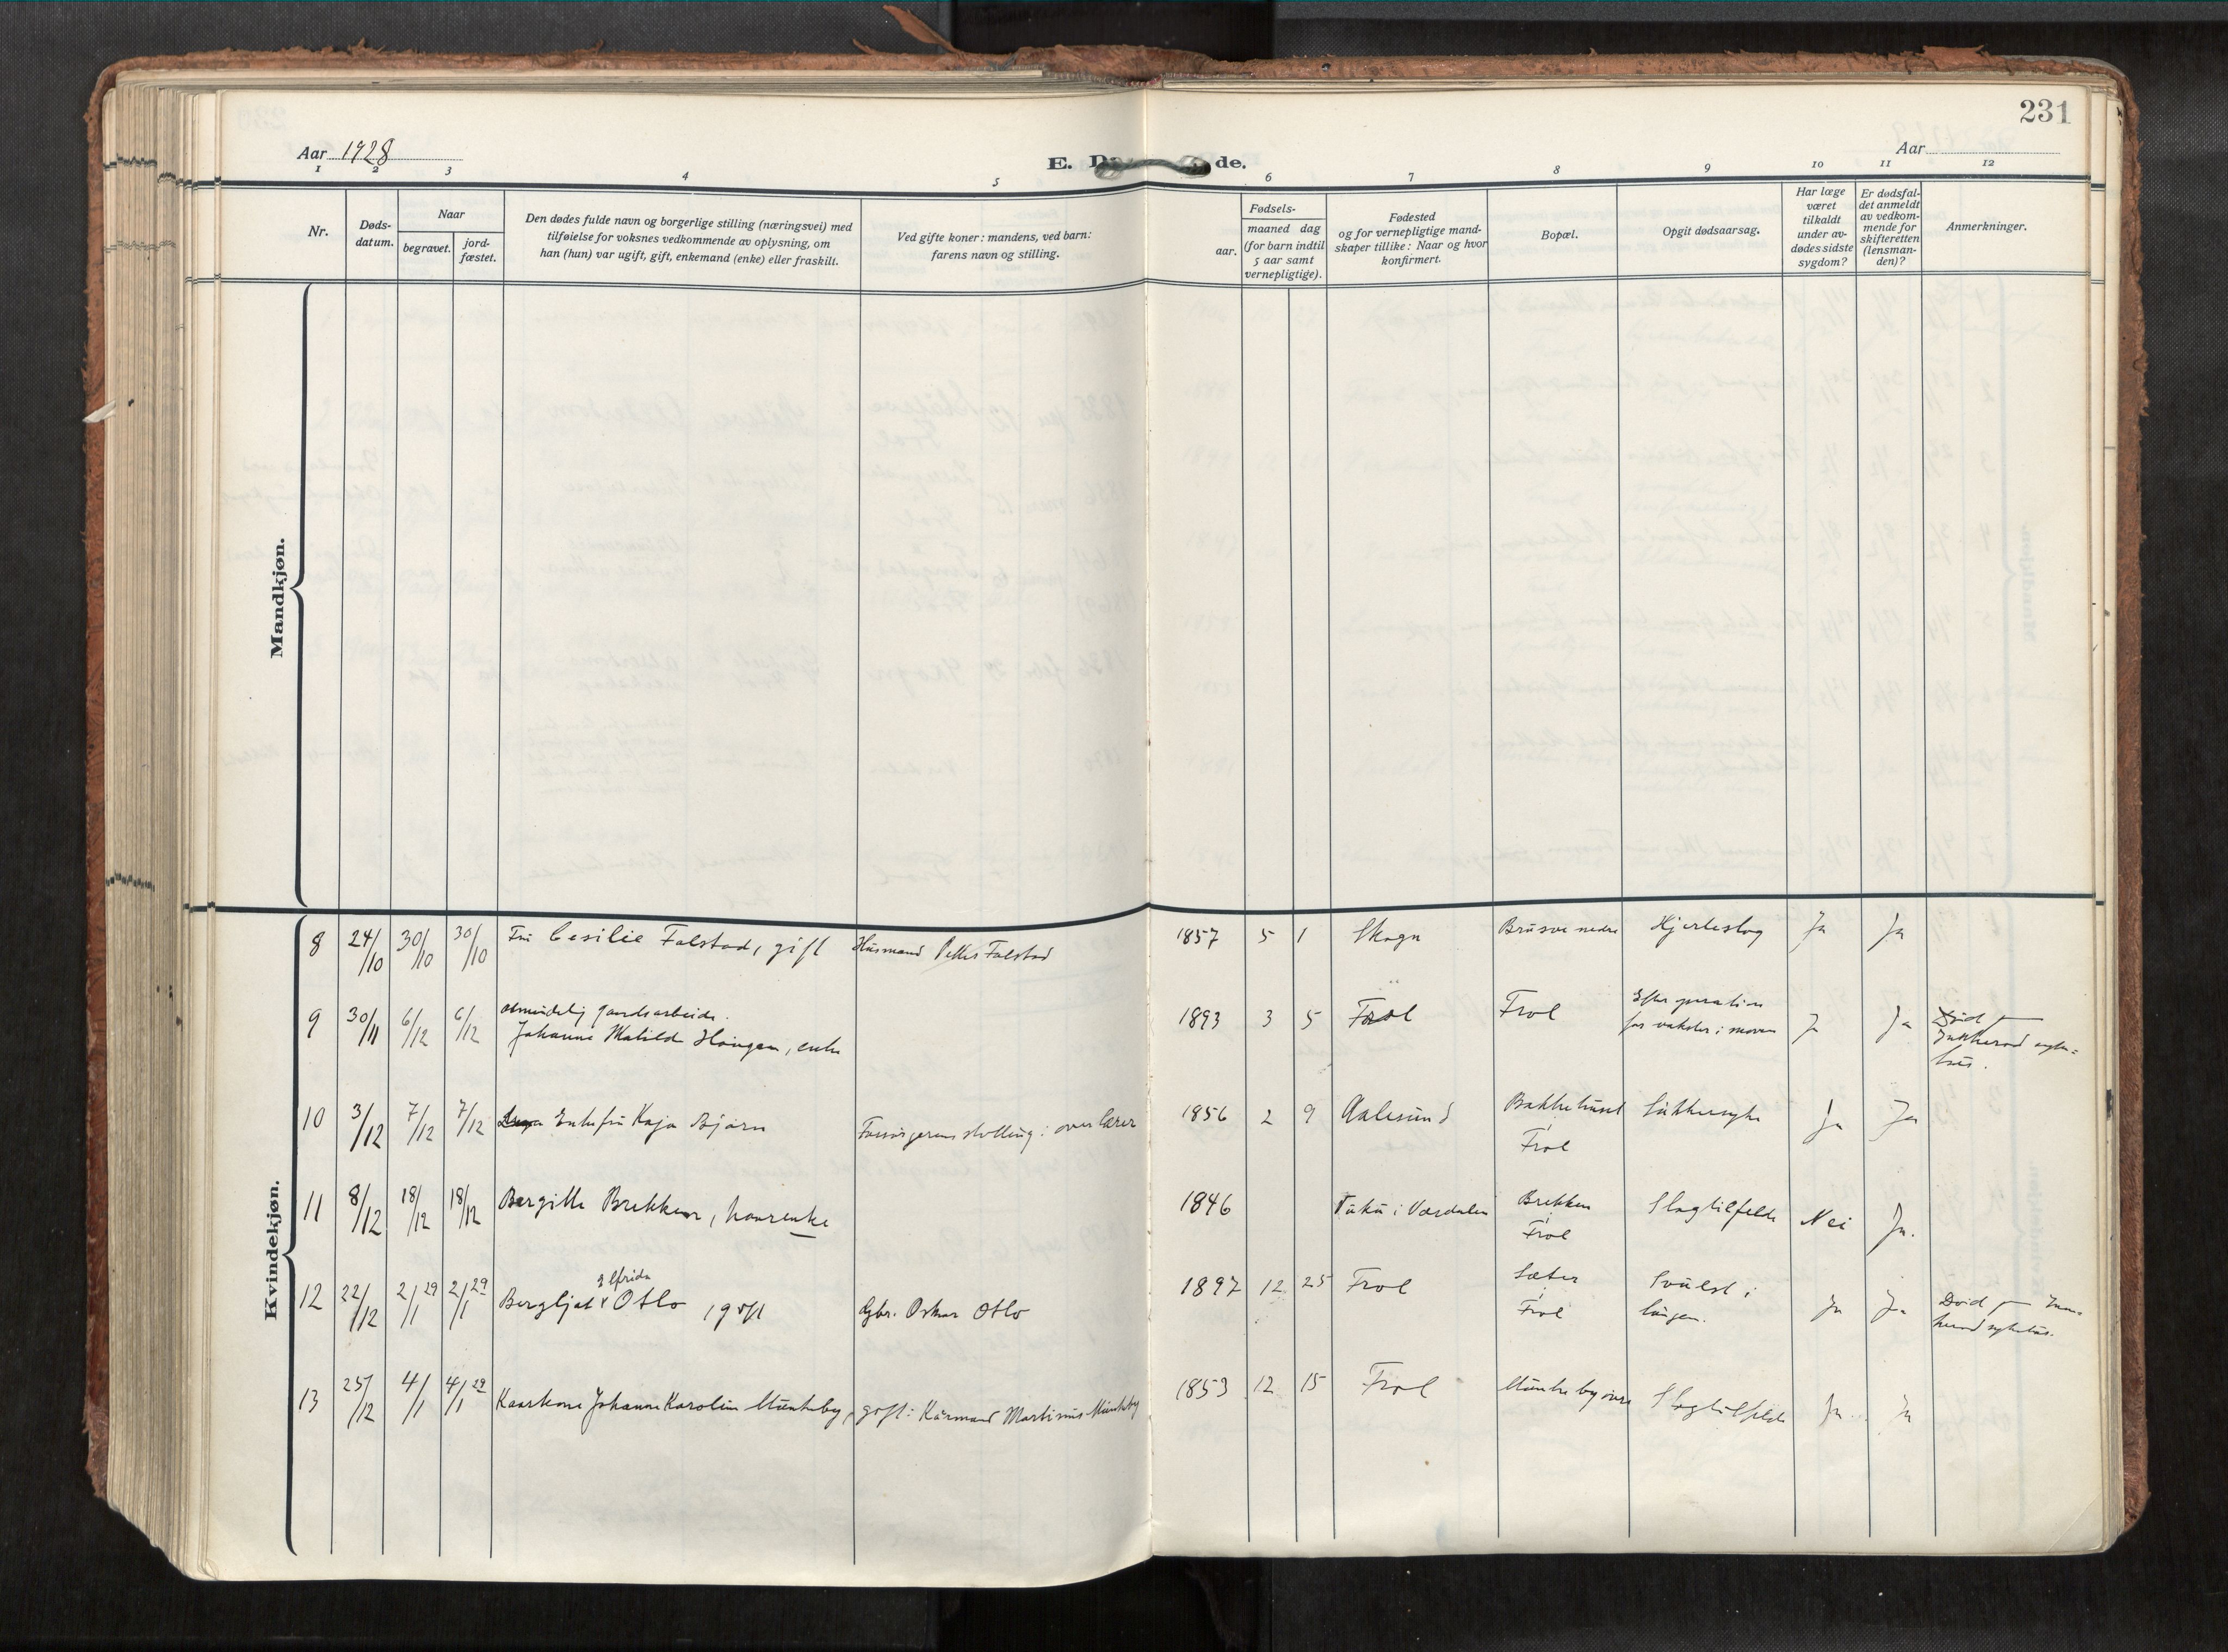 231
Aar 1928
Aar
E. D de.
1 2 3 4 5 6 7 8 9 10 11 12
Nr.
Døds-
datum.
Naar
begravet.
jord-
fæstet.
Den dødes fulde navn og borgerlige stilling (næringsvei) med
tilføielse for voksnes vedkommende av oplysning, om
han (hun) var ugift, gift, enkemand (enke) eller fraskilt.
Ved gifte koner: mandens, ved barn:
farens navn og stilling.
Fødsels-
aar.
maaned dag
(for barn indtil
5 aar samt
vernepligtige).
Fødested
og for vernepligtige mand-
skaper tillike: Naar og hvor
konfirmert.
Bopæl.
Opgit dødsaarsag.
Har læge
været
tilkaldt
under av-
dødes sidste
sygdom?
Er dødsfal-
det anmeldt
av vedkom-
mende for
skifteretten
(lensman-
den)?
Anmerkninger.
Mandkjøn.
Kvindekjøn.
8 24/10 30/10 30/10 Fru Cesilie Falstad, gift Husmand Petter Falstad 1857 5 1 Skogn Brusve nedre Hjerteslag Ja Ja
9 30/11 6/12 6/12 almindelig gaardsarbeide.
Johanne Matilde Haugan, enke 1893 3 5 Frol Frol Efter operation
for vekster i maven Ja Ja Død
Innherred syke=
hus.
10 3/12 7/12 7/12 Enkefru Kaja Bjørn Forsørgerens stilling: overlærer 1856 2 9 Aalesund Bakkehuset
i
Frol Sukkersyke Ja Ja
11 8/12 18/12 18/12 Bergitte Brekken, kaarenke 1846 Vuku i Værdalen Brekken
i
Frol Slagtilfelde Nei Ja.
12 22/12 2/1 29 2/1 29 Bergljot Elfrida Otlo, gift Gbr. Oskar Otlo 1897 12 25 Frol Sæter
i
Frol Svulst i
lungen. Ja Ja Død Inn=
herred sykehus.
13 25/12 4/1 4/1 29 Kaarkone Johanne Karoline Munkeby, gift: Kårmand Martinus Munkeby 1853 12 15 Frol Munkeby øvre Slagtilfelde Ja. Ja